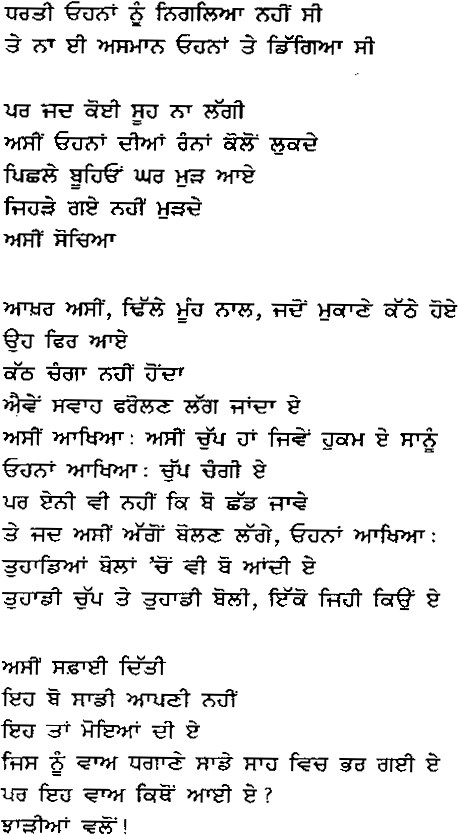 ਧਰਤੀ ਓਹਨਾਂ ਨੂੰ ਨਿਗਲਿਆ ਨਹੀਂ ਸੀ
ਤੇ ਨਾ ਈ ਅਸਮਾਨ ਓਹਨਾਂ ਤੇ ਡਿੱਗਿਆ ਸੀ

ਪਰ ਜਦ ਕੋਈ ਸੂਹ ਨਾ ਲੱਗੀ
ਅਸੀਂ ਓਹਨਾਂ ਦੀਆਂ ਰੰਨਾਂ ਕੋਲੋਂ ਲੁਕਦੇ
ਪਿਛਲੇ ਬੂਹਿਓਂ ਘਰ ਮੁੜ ਆਏ
ਜਿਹੜੇ ਗਏ ਨਹੀਂ ਮੁੜਦੇ
ਅਸੀਂ ਸੋਚਿਆ

ਆਖ਼ਰ ਅਸੀਂ, ਢਿੱਲੇ ਮੂੰਹ ਨਾਲ, ਜਦੋਂ ਮੁਕਾਣੇ ਕੱਠੇ ਹੋਏ
ਉਹ ਫਿਰ ਆਏ
ਕੱਠ ਚੰਗਾ ਨਹੀਂ ਹੋਂਦਾ
ਐਵੇਂ ਸਵਾਹ ਫਰੋਲਣ ਲੱਗ ਜਾਂਦਾ ਏ
ਅਸੀਂ ਆਖਿਆ: ਅਸੀਂ ਚੁੱਪ ਹਾਂ ਜਿਵੇਂ ਹੁਕਮ ਏ ਸਾਨੂੰ
ਓਹਨਾਂ ਆਖਿਆ: ਚੁੱਪ ਚੰਗੀ ਏ
ਪਰ ਏਨੀ ਵੀ ਨਹੀਂ ਕਿ ਬੋ ਛੱਡ ਜਾਵੇ
ਤੇ ਜਦ ਅਸੀਂ ਅੱਗੋਂ ਬੋਲਣ ਲੱਗੇ, ਓਹਨਾਂ ਆਖਿਆ:
ਤੁਹਾਡਿਆਂ ਬੋਲਾਂ 'ਚੋਂ ਵੀ ਬੋ ਆਂਦੀ ਏ
ਤੁਹਾਡੀ ਚੁੱਪ ਤੇ ਤੁਹਾਡੀ ਬੋਲੀ, ਇੱਕੋ ਜਿਹੀ ਕਿਉਂ ਏ

ਅਸੀਂ ਸਫ਼ਾਈ ਦਿੱਤੀ
ਇਹ ਬੋ ਸਾਡੀ ਆਪਣੀ ਨਹੀਂ
ਇਹ ਤਾਂ ਮੋਇਆਂ ਦੀ ਏ
ਜਿਸ ਨੂੰ ਵਾਅ ਧਗਾਣੇ ਸਾਡੇ ਸਾਹ ਵਿਚ ਭਰ ਗਈ ਏ
ਪਰ ਇਹ ਵਾਅ ਕਿਥੋਂ ਆਈ ਏ?
ਝਾੜੀਆਂ ਵਲੋਂ!